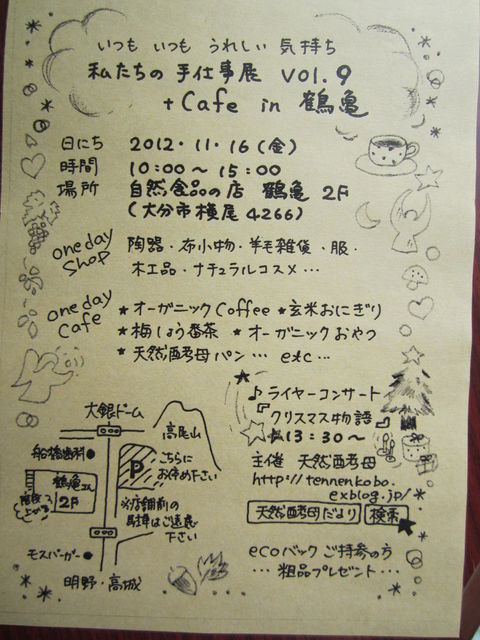 いつも いつも うれしい 気持ち
私たちの 手仕事展 VOL.9
+ Cafe in 鶴亀
日にち 2012・11・16(金)
時間 10:00〜15:00
場所 自然食品の店 鶴亀 2F
(大分市横尾4266)
one day shop
陶器・布小物・羊毛雑貨・服・
木工品・ナチュラルコスメ…
one day Cafe
★オーガニックCoffee ★玄米おにぎり
★梅しょう番茶 ★オーガニックおやつ
★天然酵母パン… etc…
大銀ドーム
高尾山
船橋歯科
鶴亀さん
2F
階段で
上がる
P
こちらに
お停め下さい
※店舗前の
駐車はご遠慮
下さい
モスバーガー
明野・高城
♪ ライヤーコンサート
『クリスマス物語』
13:30〜
主催 天然酵母
http://tennenkobo.
exblog.jp/
天然酵母だより 検索
ecoバック ご持参の方
…粗品プレゼント…